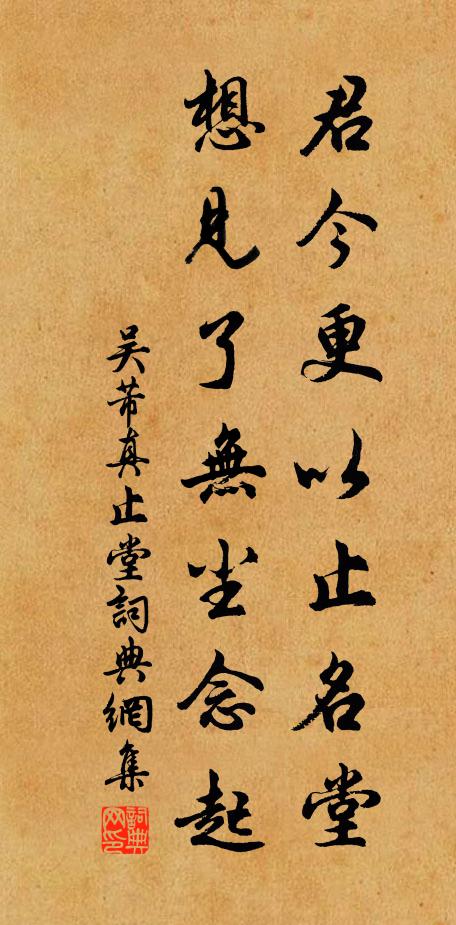 君今更以止名堂
想見了無尘念起
吴芾真止堂詞典網集
詞典网印